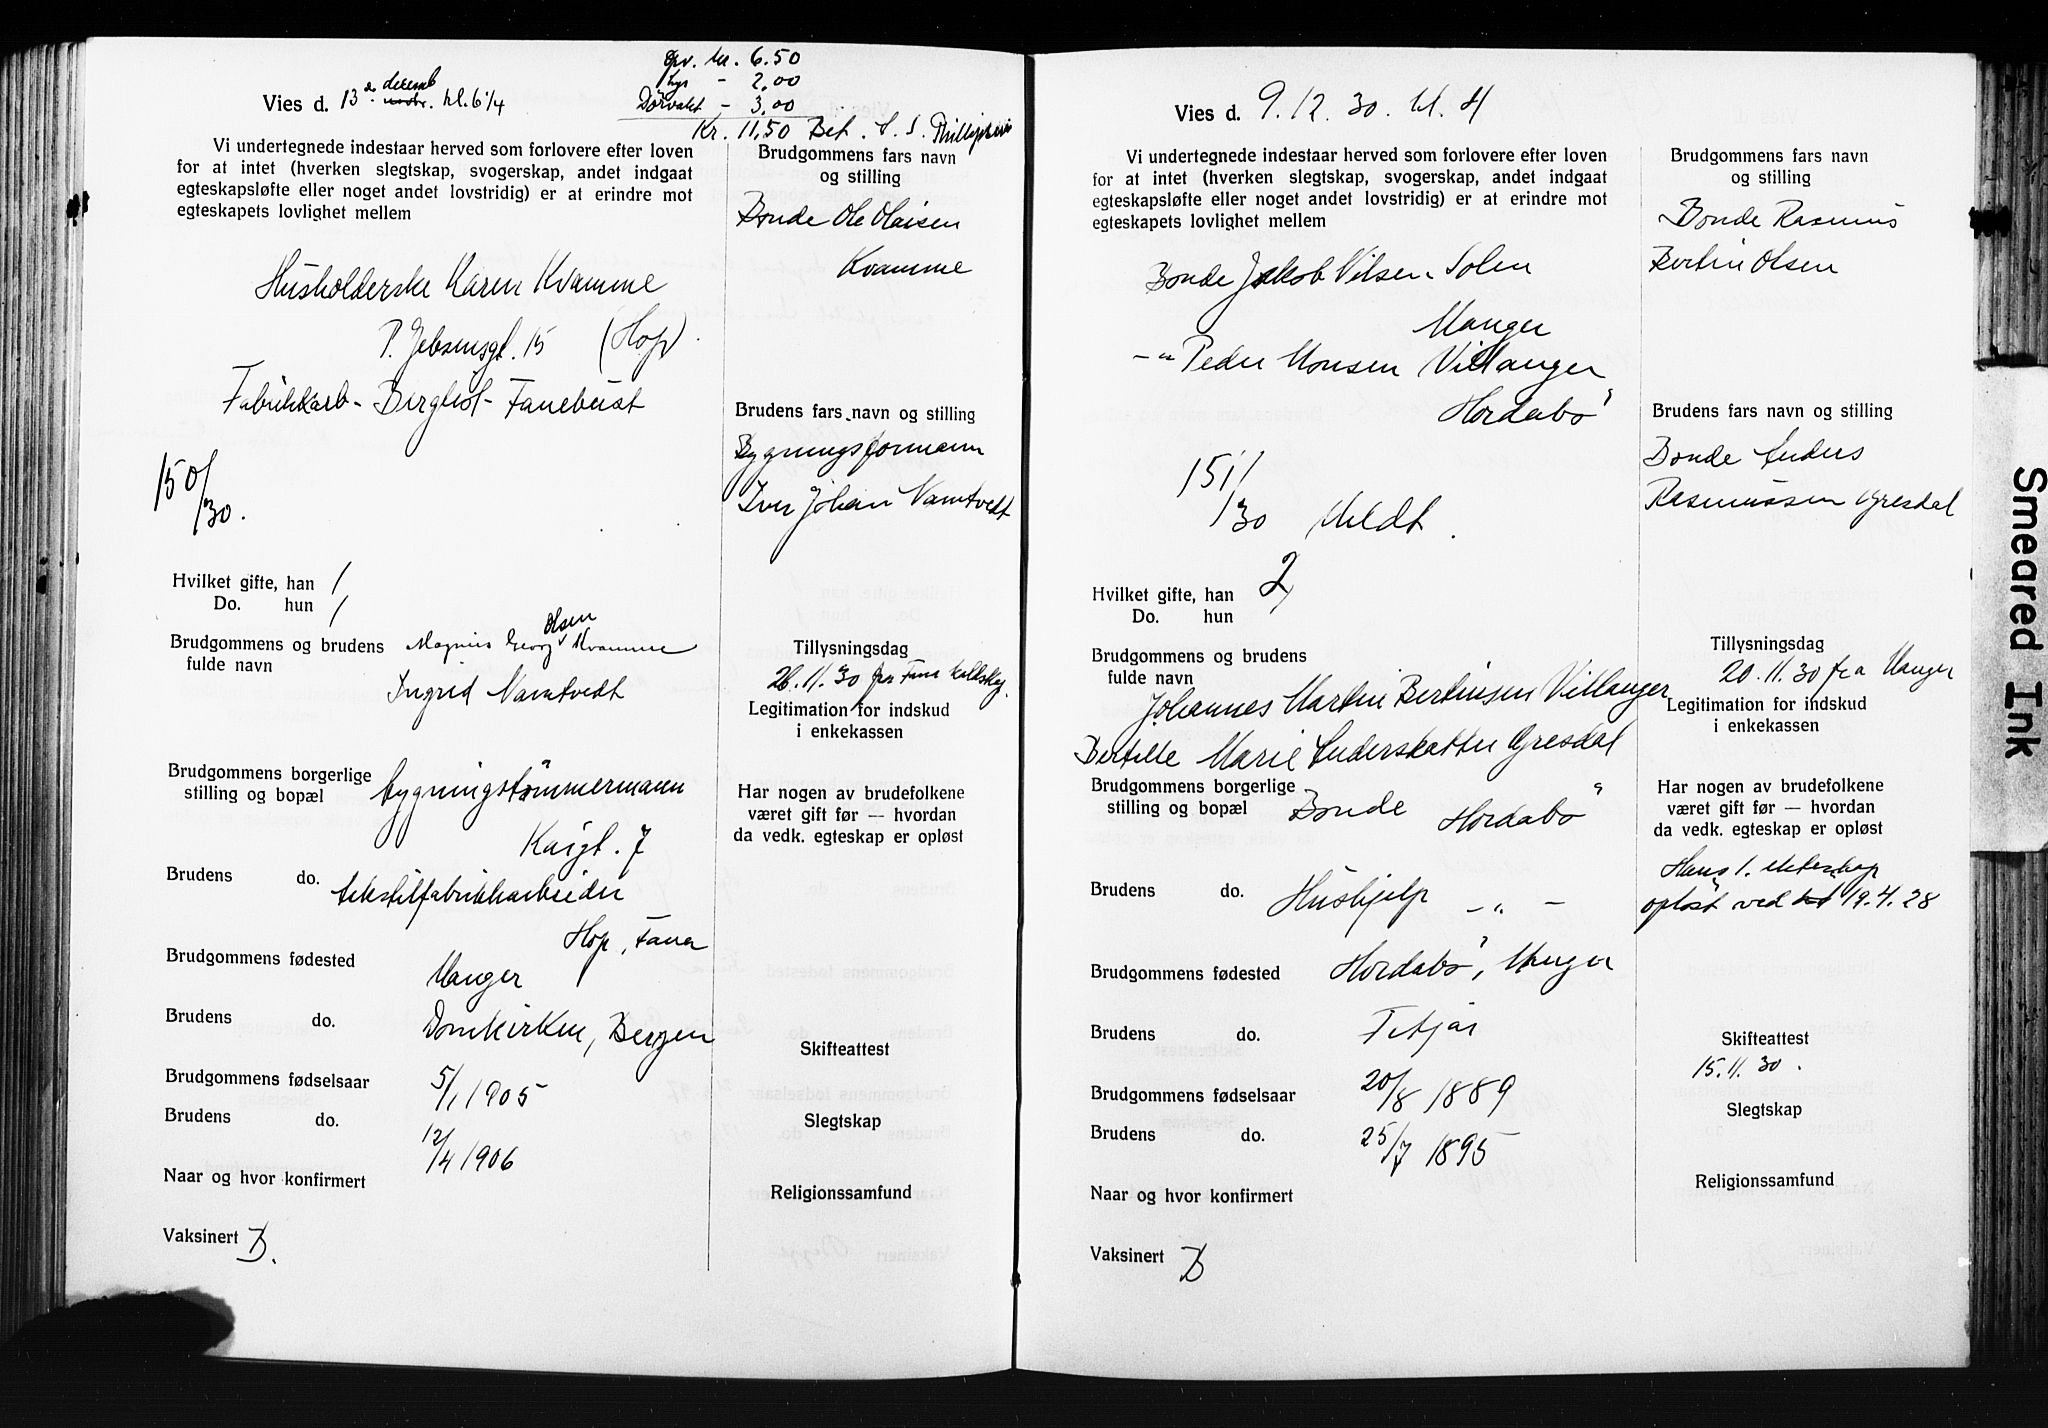 Vies d. 13de decemb novbr. kl. 6 1/4
Opv. kr. 6.50
Lys - 2.00
Dørvakt - 3.00
Kr. 11,50 Bet.
Vi undertegnede indestaar herved som forlovere efter loven
for at intet (hverken slegtskap, svogerskap, andet indgaat
egteskapsløfte eller noget andet lovstridig) er at erindre mot
egteskapets lovlighet mellem
Husholderske Karen Kvamme
P. Jebsensgt. 15 (Hop)
Fabrikkarb - Bergliot - Fanebust
150/30.
Hvilket gifte, han 1
Do. hun 1
Brudgommens og brudens
fulde navn
Magnus Georg Olsen Kvamme
Ingrid Namtvedt
Brudgommens borgerlige
stilling og bopæl
bygningstømmermann
Kaigt. 7
Brudens do. tekstilfabrikkarbeider
Hop, Fana
Brudgommens fødested Manger
Brudens do. Domkirken, Bergen
Brudgommens fødselsaar 5/1 1905
Brudens do. 12/4 1906
Naar og hvor konfirmert
Vaksinert B.
Brudgommens fars navn
og stilling
Bonde Ole Olaisen
Kvamme
Brudens fars navn og stilling
Bygningsformann
Iver Johan Namtvedt
Tillysningsdag
26.11.30 fra Fana
Legitimation for indskud
i enkekassen
Har nogen av brudefolkene
været gift før — hvordan
da vedk. egteskap er opløst
Skifteattest
Slegtskap
Religionssamfund
Vies d. 9.12.30 kl. 4
Vi undertegnede indestaar herved som forlovere efter loven
for at intet (hverken slegtskap, svogerskap, andet indgaat
egteskapsløfte eller noget andet lovstridig) er at erindre mot
egteskapets lovlighet mellem
Bonde Jakob Nilsen Solen
Manger
-"- Peder Monsen Villanger
Hordabø
151/30 Meldt.
Hvilket gifte, han 2
Do. hun
Brudgommens og brudens
fulde navn
Johannes Martin Bertinsen Villanger
Bertille Marie Andersdatter Gresdal
Brudgommens borgerlige
stilling og bopæl
Bonde Hordabø
Brudens do. Hushjelp -"-
Brudgommens fødested Hordabø, Manger
Brudens do. Fitjar
Brudgommens fødselsaar 20/8 1889
Brudens do. 25/7 1895
Naar og hvor konfirmert
Vaksinert B
Brudgommens fars navn
og stilling
Bonde Rasmus
Bertin Olsen
Brudens fars navn og stilling
Bonde Anders
Rasmussen Gresdal
Tillysningsdag
20.11.30 fra Manger
Legitimation for indskud
i enkekassen
Har nogen av brudefolkene
været gift før — hvordan
da vedk. egteskap er opløst
Hans 1. ekteskap
opløst ved 19.4.28
Skifteattest
15.11.30.
Slegtskap
Religionssamfund
Smeared Ink